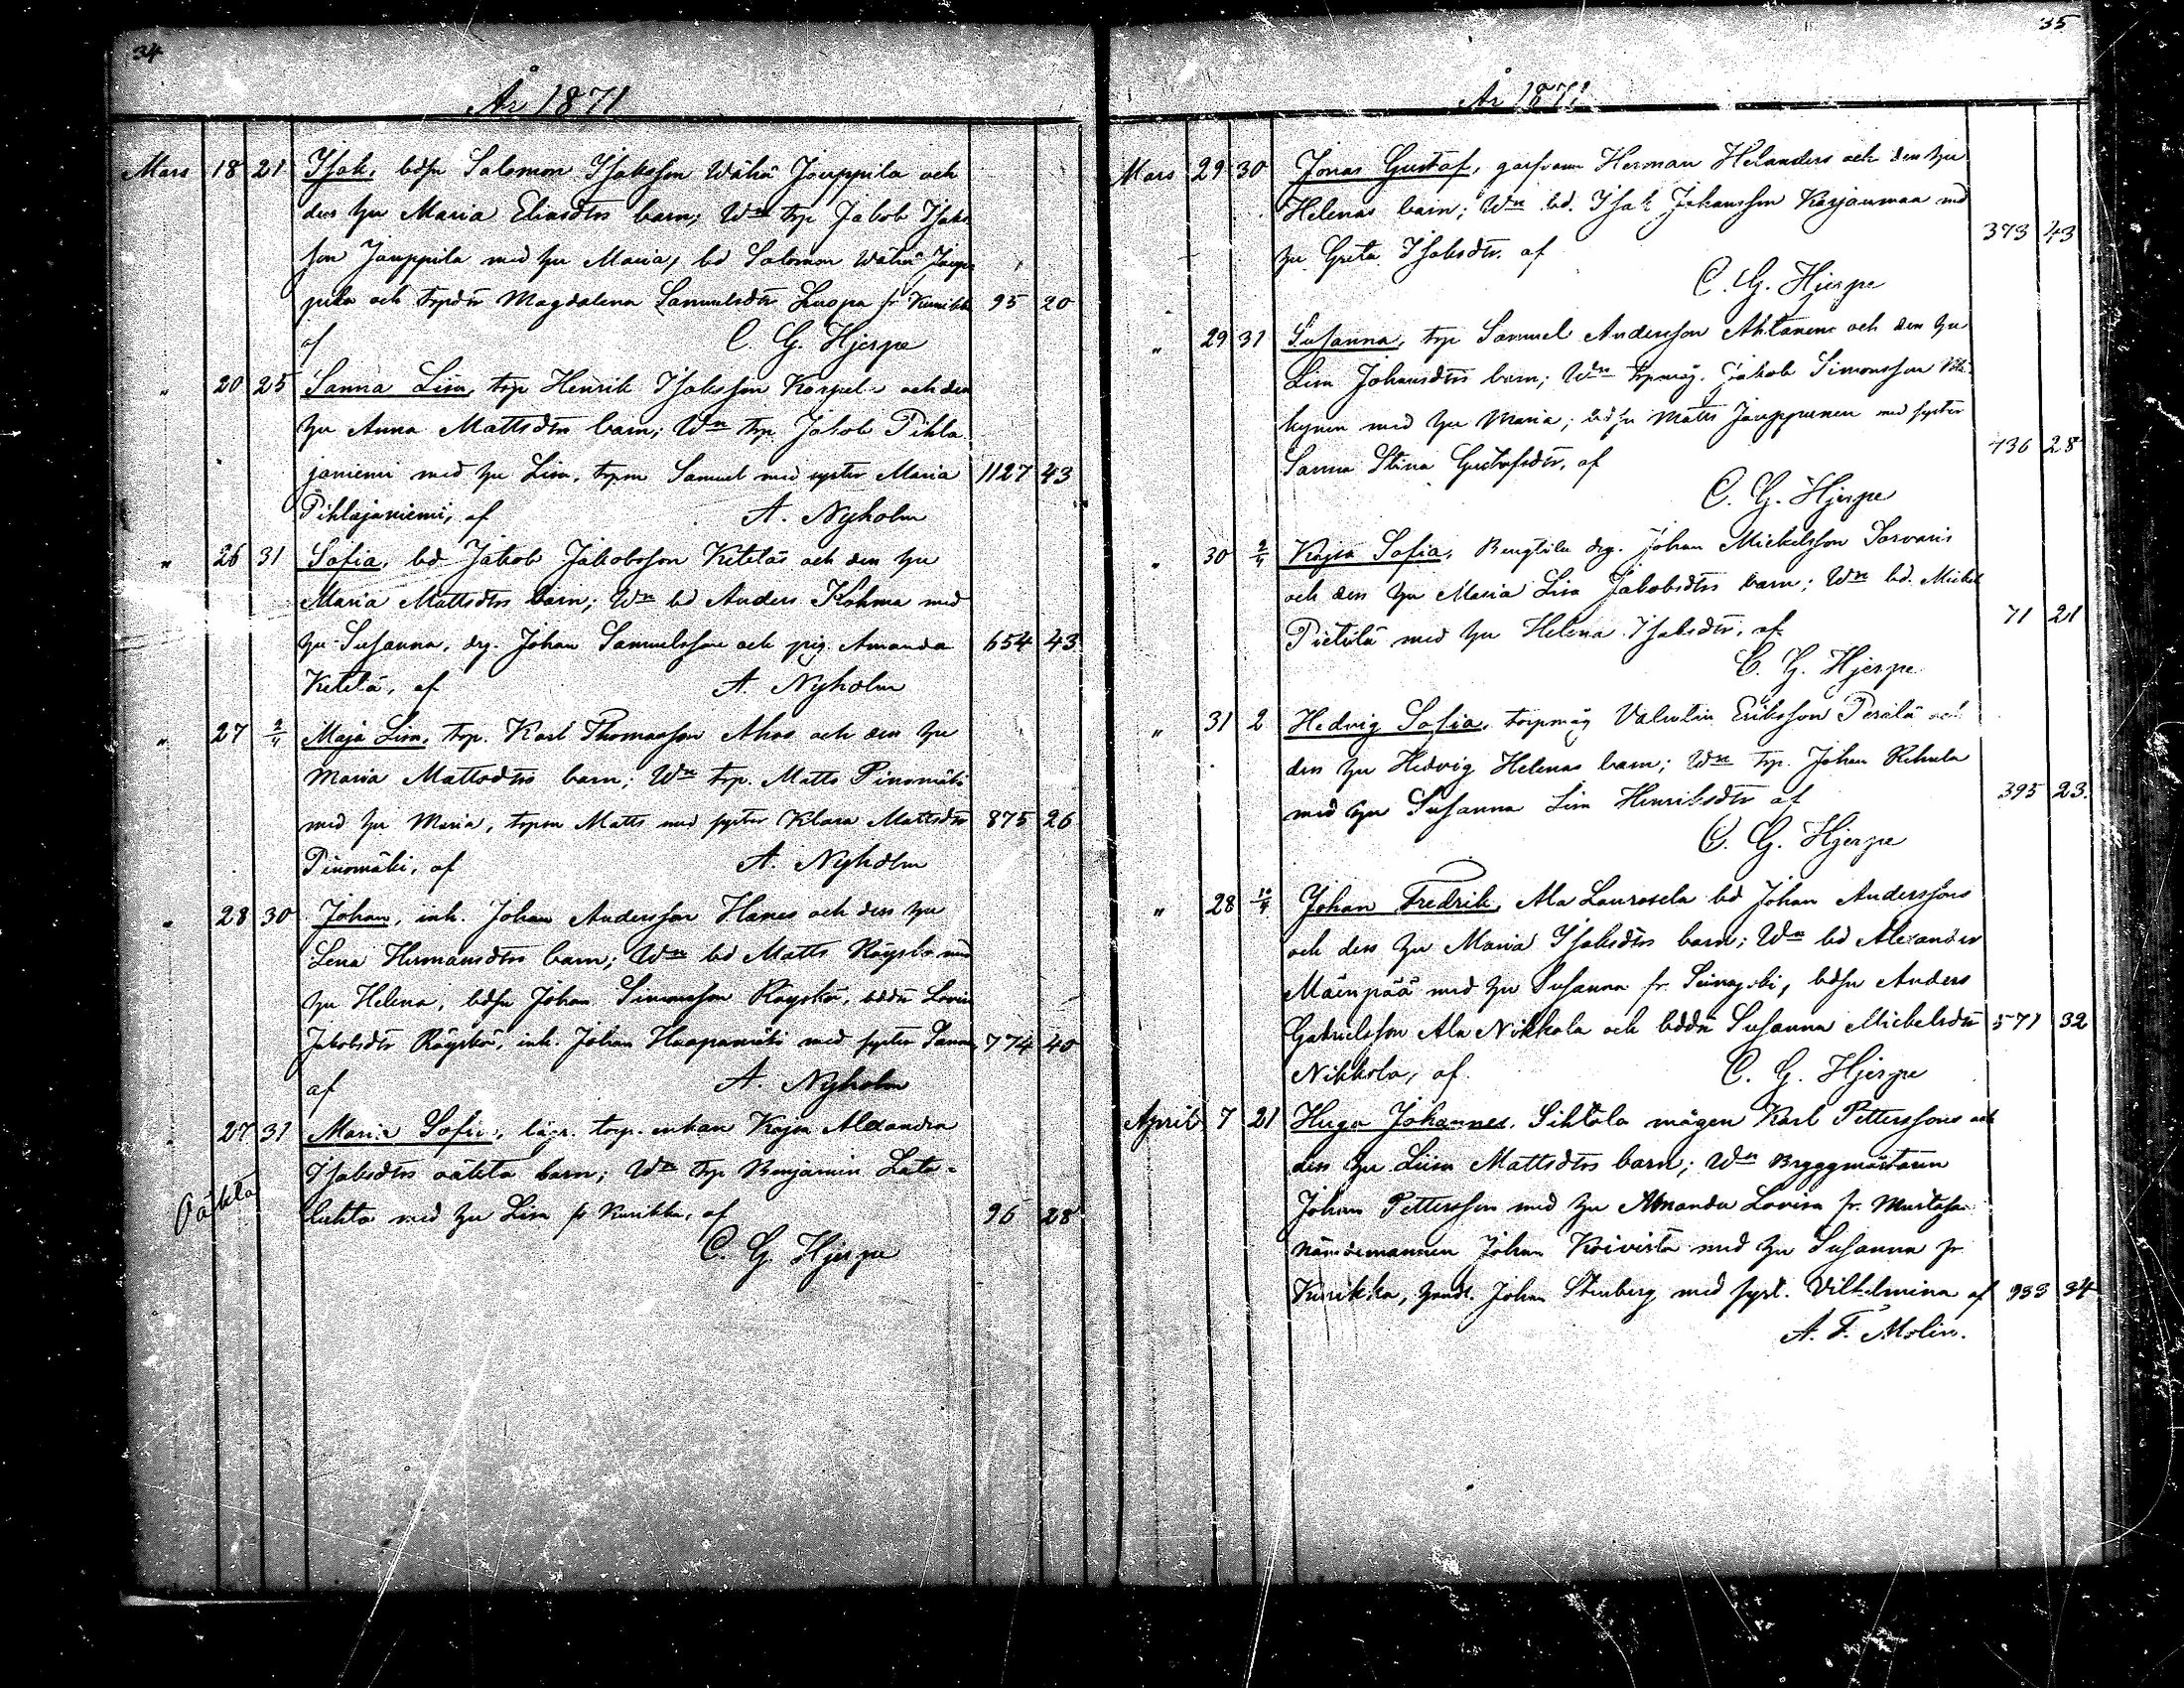 34
År 1871
Mars 18 21 Isak, bdsn Salomon Isaksson Wähä Jouppila och
dess hu Maria Eliasdtrs barn; Wn trp Jakob Isaks
son Jouppila med hu Maria, bd Salomon Wähä Joup
pila och trpdtr Magdalena Samuelsdtr Luopa fr Kurikka 95 20
af C. G. Hjerpe
" 20 25 Sanna Lisa, trp Henrik Isaksson Korpela och dess
hu Anna Mattsdtrs barn; Wn trp Jakob Pihla
janiemi med hu Lisa, trpsn Samuel med syster Maria 1127 43
Pihlajaniemi, af A. Nyholm
" 26 31 Sofia, bd Jakob Jakobsson Ketelä och dess hu
Maria Mattsdtrs barn; Wn bd Anders Kohma med
hu Susanna, drg. Johan Samuelsson och pig. Amanda 654 43
Ketelä, af A. Nyholm
" 27 2/4 Maja Lisa, trp. Karl Thomasson Ahos och dess hu
Maria Mattsdtrs barn; Wn trp. Matts Pinomäki
med hu Maria, trpsn Matts med syster Klara Mattsdtr 875 26
Pinomäki, af A. Nyholm
" 28 30 Johan, inh. Johan Andersson Hanes och dess hu
Lena Hermansdtrs barn; Wn bd Matts Röyskö med
hu Helena, bdsn Johan Simonsson Röyskö, bddtr Lovisa
Jakobsdtr Röyskö, inh. Johan Haapamäki med syster Sanna, 774 40
af A. Nyholm
" 27 31 Maria Sofia, trp. enkan Kajsa Alexandra
Isaksdtrs oäkta barn; Wn trp Benjamin Lata-
Oäkta luhta med hu Lisa fr Kurikka, af 96 28
C. G. Hjerpe
35
År 1871
Mars 29 30 Jonas Gustaf, garfvaren Herman Helanders och dess hu
Helenas barn; Wn bd. Isak Johansson Karjanmaa med
hu Greta Isaksdtr. af 373 43
C. G. Hjerpe
" 29 31 Susanna, trp Samuel Andersson Ahtanens och dess hu
Lisa Johansdtrs barn; Wn trpmåg. Jakob Simonsson
kynen med hu Maria; bdsn Matts Jouppinen med syster
Sanna Stina Gustafsdtr, af 736 28
C. G. Hjerpe
" 30 2/4 Kajsa Sofia, Bengtila drg. Johan Mickelsson Sorvaris
och dess hu Maria Lisa Jakobsdtrs barn; Wn bd. Mickel
Pietilä med hu Helena Isaksdtr, af 71 21
C. G. Hjerpe
" 31 2 Hedvig Sofia, torpmåg Valentin Eriksson Perälä och
dess hu Hedvig Helenas barn; Wn trp. Johan Rehula
med hu Susanna Lisa Henriksdtr af 395 23.
C. G. Hjerpe
" 28 10/4 Johan Fredrik, Ala Laurosela bd Johan Anderssons
och dess hu Maria Isaksdtrs barn; Wn bd Alexander
Mäenpää med hu Susanna fr. Seinäjoki, bdsn Anders
Gabrielsson Ala Nikkola och bddtr Susanna Mickelsdtr 571 32
Nikkola, af. C. G. Hjerpe
April 7 21 Hugo Johannes, Sihtola mågen Karl Petterssons och
dess hu Liisa Mattsdtrs barn; Wn Bryggmästaren
Johan Pettersson med hu Amanda Lovisa fr. Mustasaari
nämdemannen Johan Koivisto med hu Susanna fr
Kurikka, handl. Johan Stenberg med syst. Vilhelmina af 933 34
A. F. Molin.